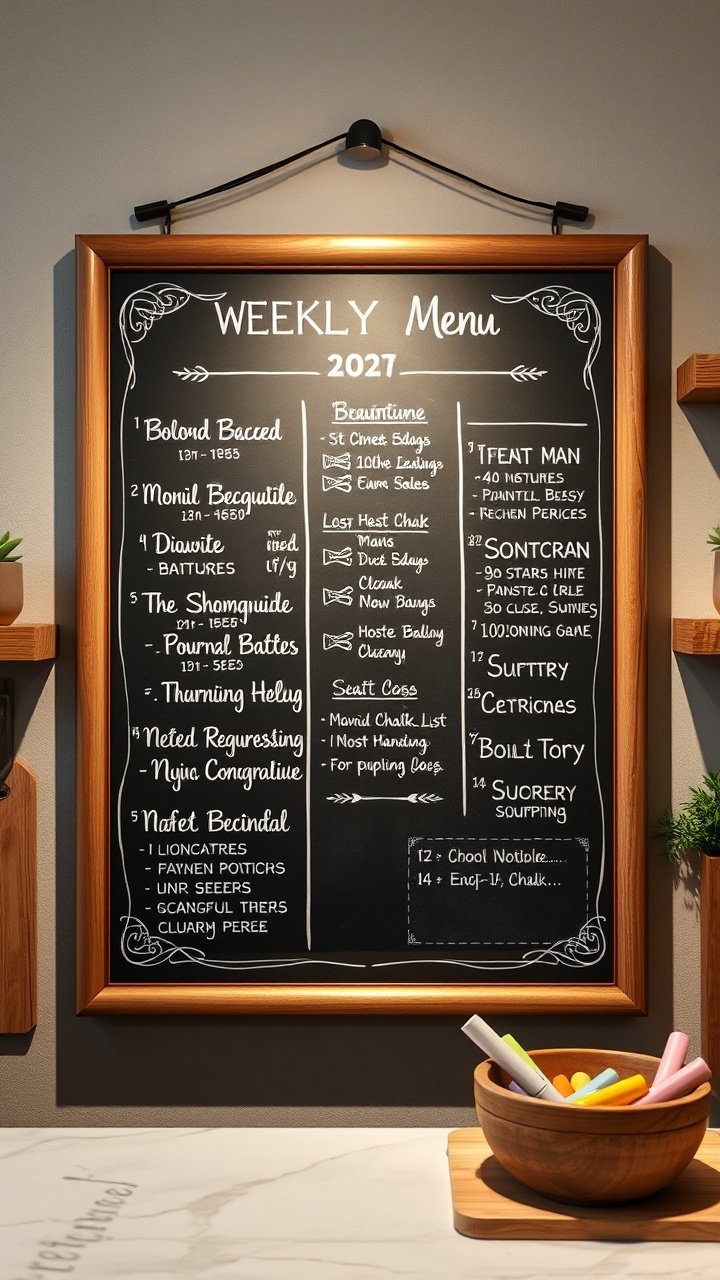 WEEKLY Menu
2027
1 Bolord Bacced
2 Monil Becqutile
4 Diawite
- BATTURES
5 The Shomguide
-. Pournal Battes
=. Thurning Helug
Neted Regurssting
- Nyic Congratiue
5 Nafet Becindal
- I LIONCATRES
- FAYNEN POITICHS
- UNR SEEERS
- SCANGFUL THERS
CLUARY PEREE
- St Cinest Edags
Eann Sales
Lost Hest Chak
Mans
Duct Edays
Cloak
Now Bangs
Hoste Balling
Seatt Coss
- Movid Chalk List
- I Nost Handing
- For pupling Coss.
TFEAT MAN
-40 MISTURES
- PAINTIL BEESY
- RECHEN PERICES
22 SONTCRAN
- 90 STARS HIRE
- PANSTE C IRLE
SO CLISE, SUNIES
7 100IONING GAME,
12 SUFTTRY
CETRICNES
BOILT TORY
14 SUCRERY
SOUFPING
12 : Chool Notible....
14 : Encf-if, Chalk...